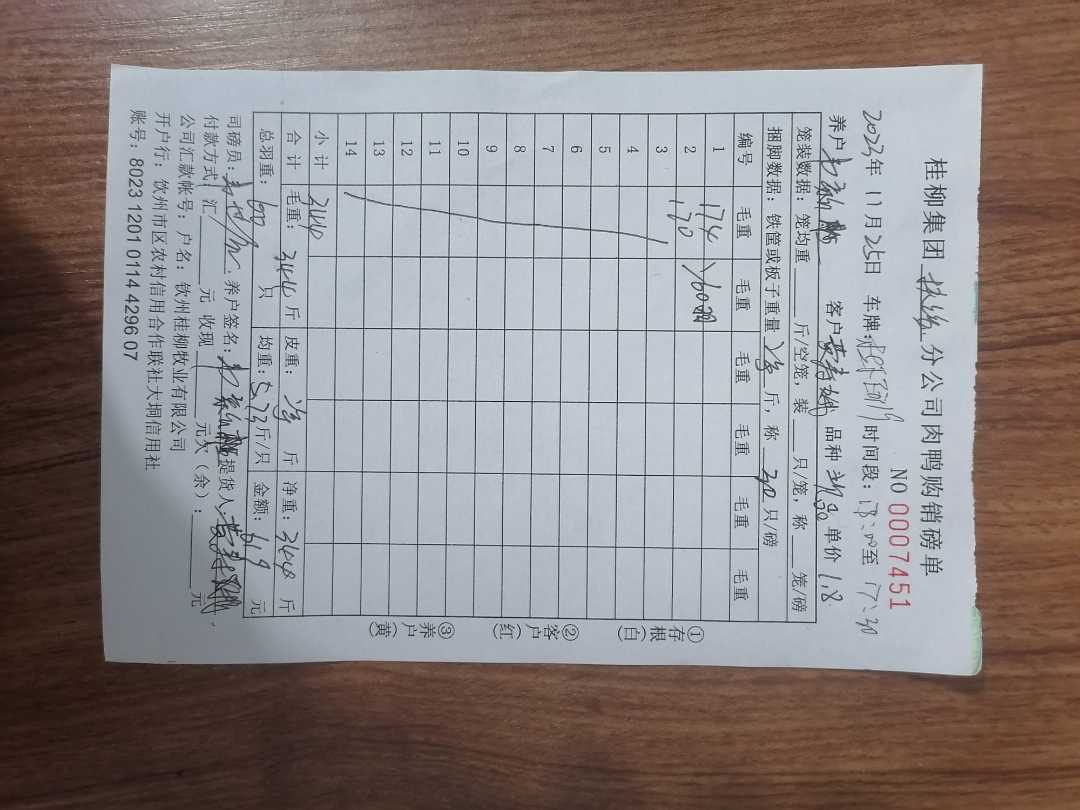 桂柳集团 分公司肉鸭购销磅单
NO 0007451
2023年 11月25日 车牌: 时间段: 至 17:30
养户 客户 品种 单价 1.8
笼装数据: 笼均重 斤/空笼, 装 只/笼, 称 笼/磅
捆脚数据: 铁筐或板子重量 斤, 称 30 只/磅
编号 毛重 毛重 毛重 毛重 毛重 毛重
1 174
2 170
3
4
5
6
7
8
9
10
11
12
13
14
小计 344
合计 毛重: 344 斤 皮重: 斤 净重: 344 斤
总羽重: 60 只 均重: 5.73 斤/只 金额: 619 元
司磅员: 养户签名: 提货人:
付款方式: 汇 元 收现 元欠(余): 元
公司汇款帐号: 户名: 钦州桂柳牧业有限公司
开户行: 钦州市区农村信用合作联社大垌信用社
账号: 802312010114429607
①存根(白)
②客户(红)
③养户(黄)